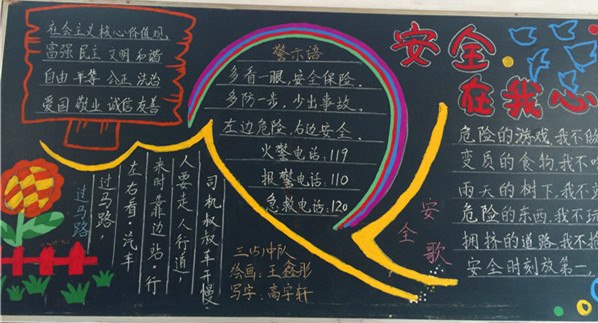 社会主义核心价值观。
富强 民主 文明 和谐
自由 平等 公正 法治
爱国 敬业 诚信 友善
警示语
多看一眼,安全保险。
多防一步,少出事故。
左边危险,右边安全。
火警电话:119
报警电话:110
急救电话:120
安全
在我心
安全歌
危险的游戏我不做
变质的食物,我不
雨天的树下,我不
危险的东西,我不玩
拥挤的道路,我不抢
安全时刻放第一,
过马路
过马路,
左右看,汽车
来时靠边站,行
人要走人行道,
司机叔叔车开慢
三(5)中队
绘画:王鑫彤
写字:高宇轩